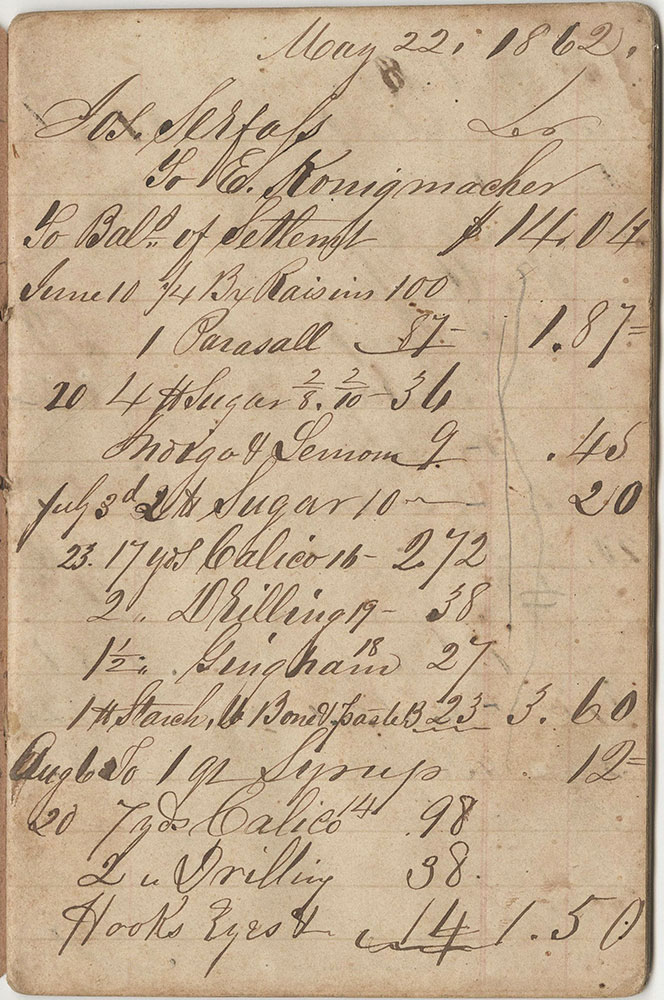 May 22, 1862.
Jos. Serfass Dr
To E. Konigmacher
To Bald. of Settlemt $ 14.04
June 10 1/4 Bx Raisins 100
1 Parasall 87 1.87
20 4 # Sugar 2/8. 2/10 - 36
& Lemon 9 .45
July 3d 2 # Sugar 10 20
23. 17 yds Calico 16 - 272
2 " Drilling 19 - 38
1 1/2 " Gingham 18 27
1 # Starch, Bone & 23 3.60
Aug 6 To 1 qt Syrup 12
20 7 yds Calico 14 .98
2 " Drilling 38.
Hooks Eyes & 14 1.50